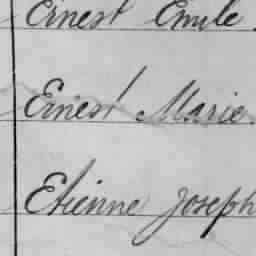 Ernest Emile.
Ernest Marie.
Etienne Joseph